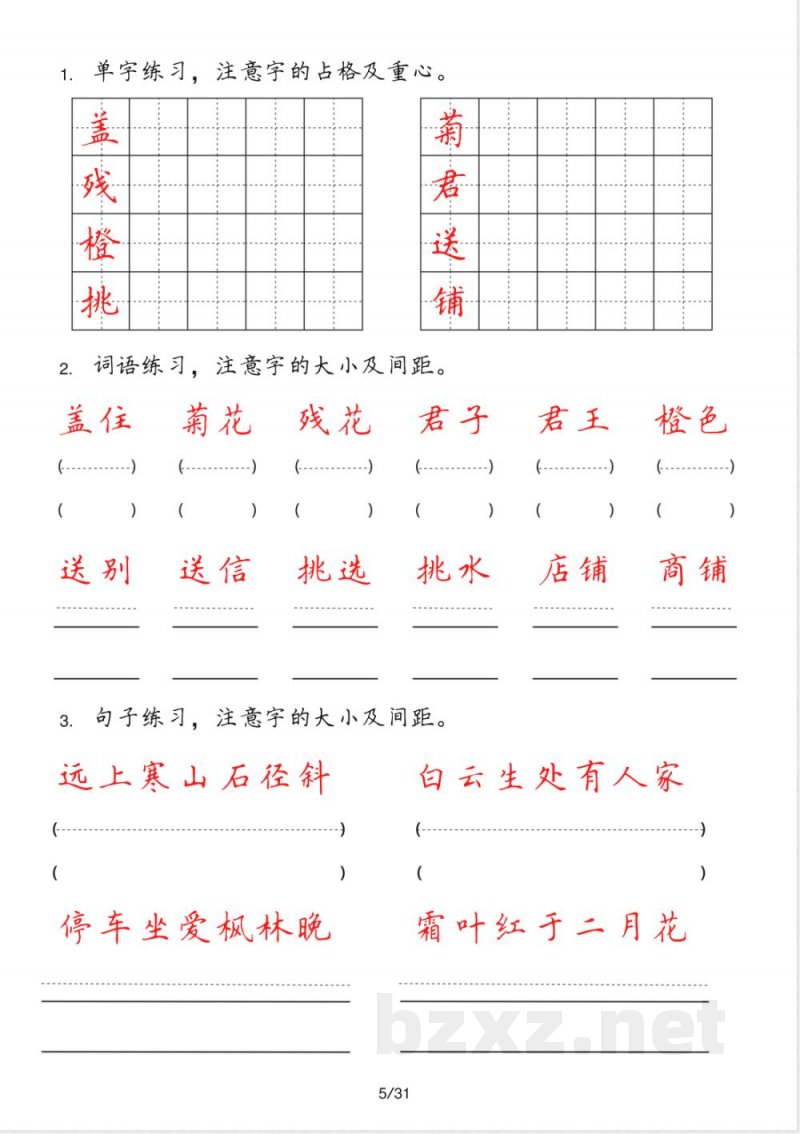 1. 单字练习，注意字的占格及重心。
盖 菊
残 君
橙 送
挑 铺
2. 词语练习，注意字的大小及间距。
盖住 菊花 残花 君子 君王 橙色
( ) ( ) ( ) ( ) ( ) ( )
( ) ( ) ( ) ( ) ( ) ( )
送别 送信 挑选 挑水 店铺 商铺
3. 句子练习，注意字的大小及间距。
远上寒山石径斜 白云生处有人家
( ) ( )
( ) ( )
停车坐爱枫林晚 霜叶红于二月花
bzxz.net
5/31